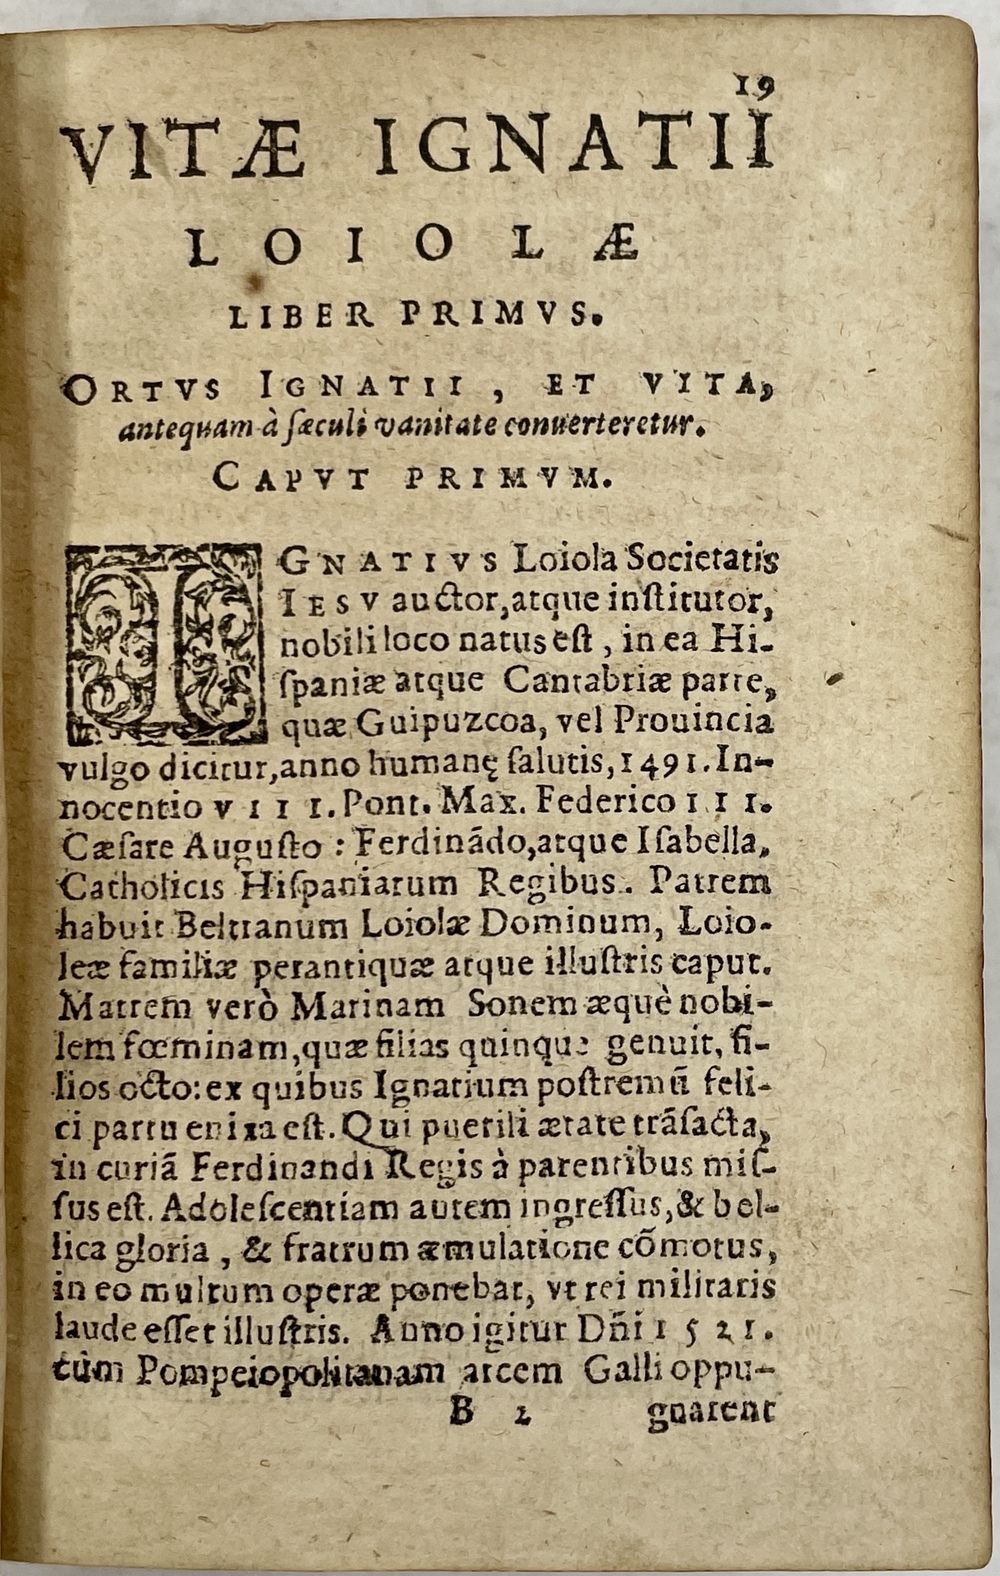 19
VITÆ IGNATII
LOIOLÆ
LIBER PRIMVS.
ORTVS IGNATII, ET VITA,
antequam à sæculi vanitate conuerteretur.
CAPVT PRIMVM.
IGNATIVS Loiola Societatis
IESV auctor, atque institutor,
nobili loco natus est, in ea Hi-
spaniæ atque Cantabriæ parte,
quæ Guipuzcoa, vel Prouincia
vulgo dicitur, anno humanę salutis, 1491. In-
nocentio VIII. Pont. Max. Federico III.
Cæsare Augusto: Ferdinãdo, atque Isabella,
Catholicis Hispaniarum Regibus. Patrem
habuit Beltranum Loiolæ Dominum, Loio-
leæ familiæ perantiquæ atque illustris caput.
Matrem verò Marinam Sonem æquè nobi-
lem fœminam, quæ filias quinque genuit, fi-
lios octo: ex quibus Ignatium postremũ feli-
ci partu enixa est. Qui puerili ætate trãsacta,
in curiã Ferdinandi Regis à parentibus mis-
sus est. Adolescentiam autem ingressus, & bel-
lica gloria, & fratrum æmulatione cõmotus,
in eo multum operæ ponebat, vt rei militaris
laude esset illustris. Anno igitur Dñi 1521.
cùm Pompeiopolitanam arcem Galli oppu-
B 2 gnarent